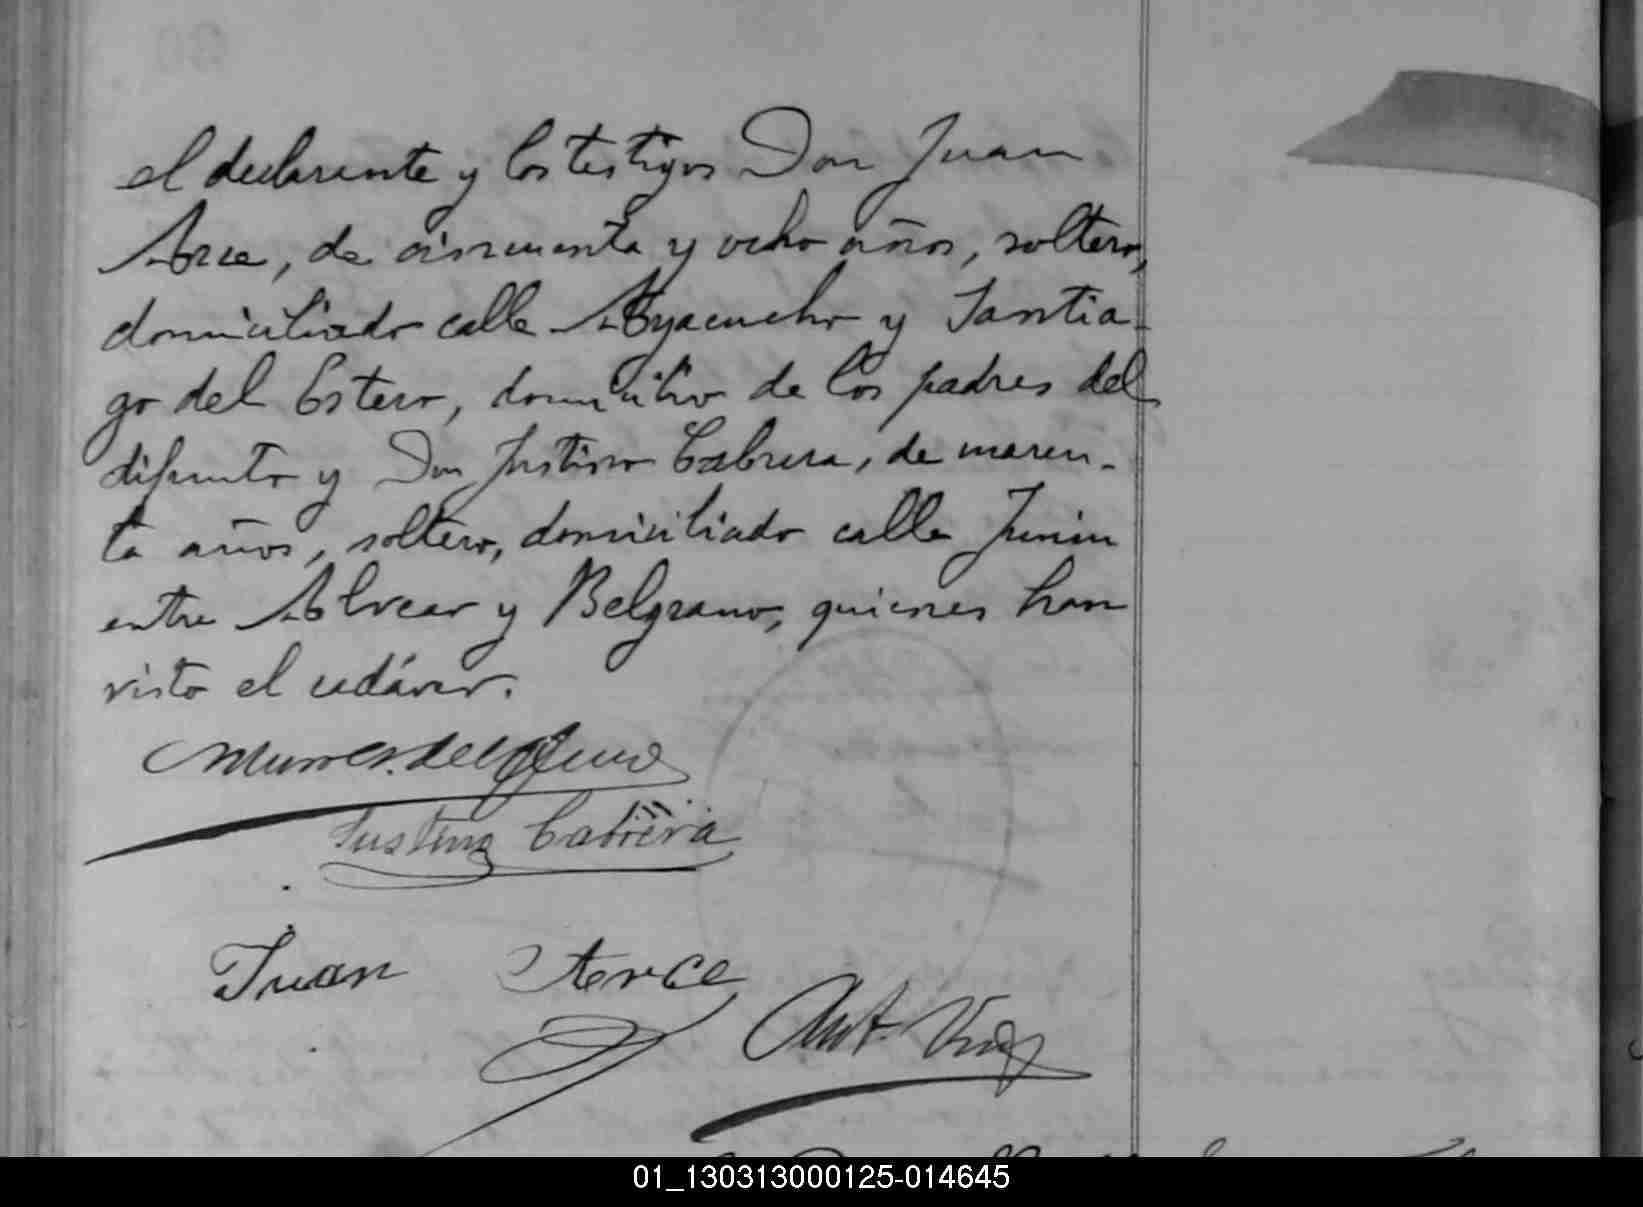 el declarante y los testigos Don Juan
Arce, de cincuenta y ocho años, soltero,
domiciliado calle Ayacucho y Santia-
go del Estero, domicilio de los padres del
difunto y Don Justino Cabrera, de cuaren-
ta años, soltero, domiciliado calle Junin
entre Alvear y Belgrano, quienes han
visto el cadáver.
Justino Cabrera
Juan Arce
Ant.
01_130313000125-014645